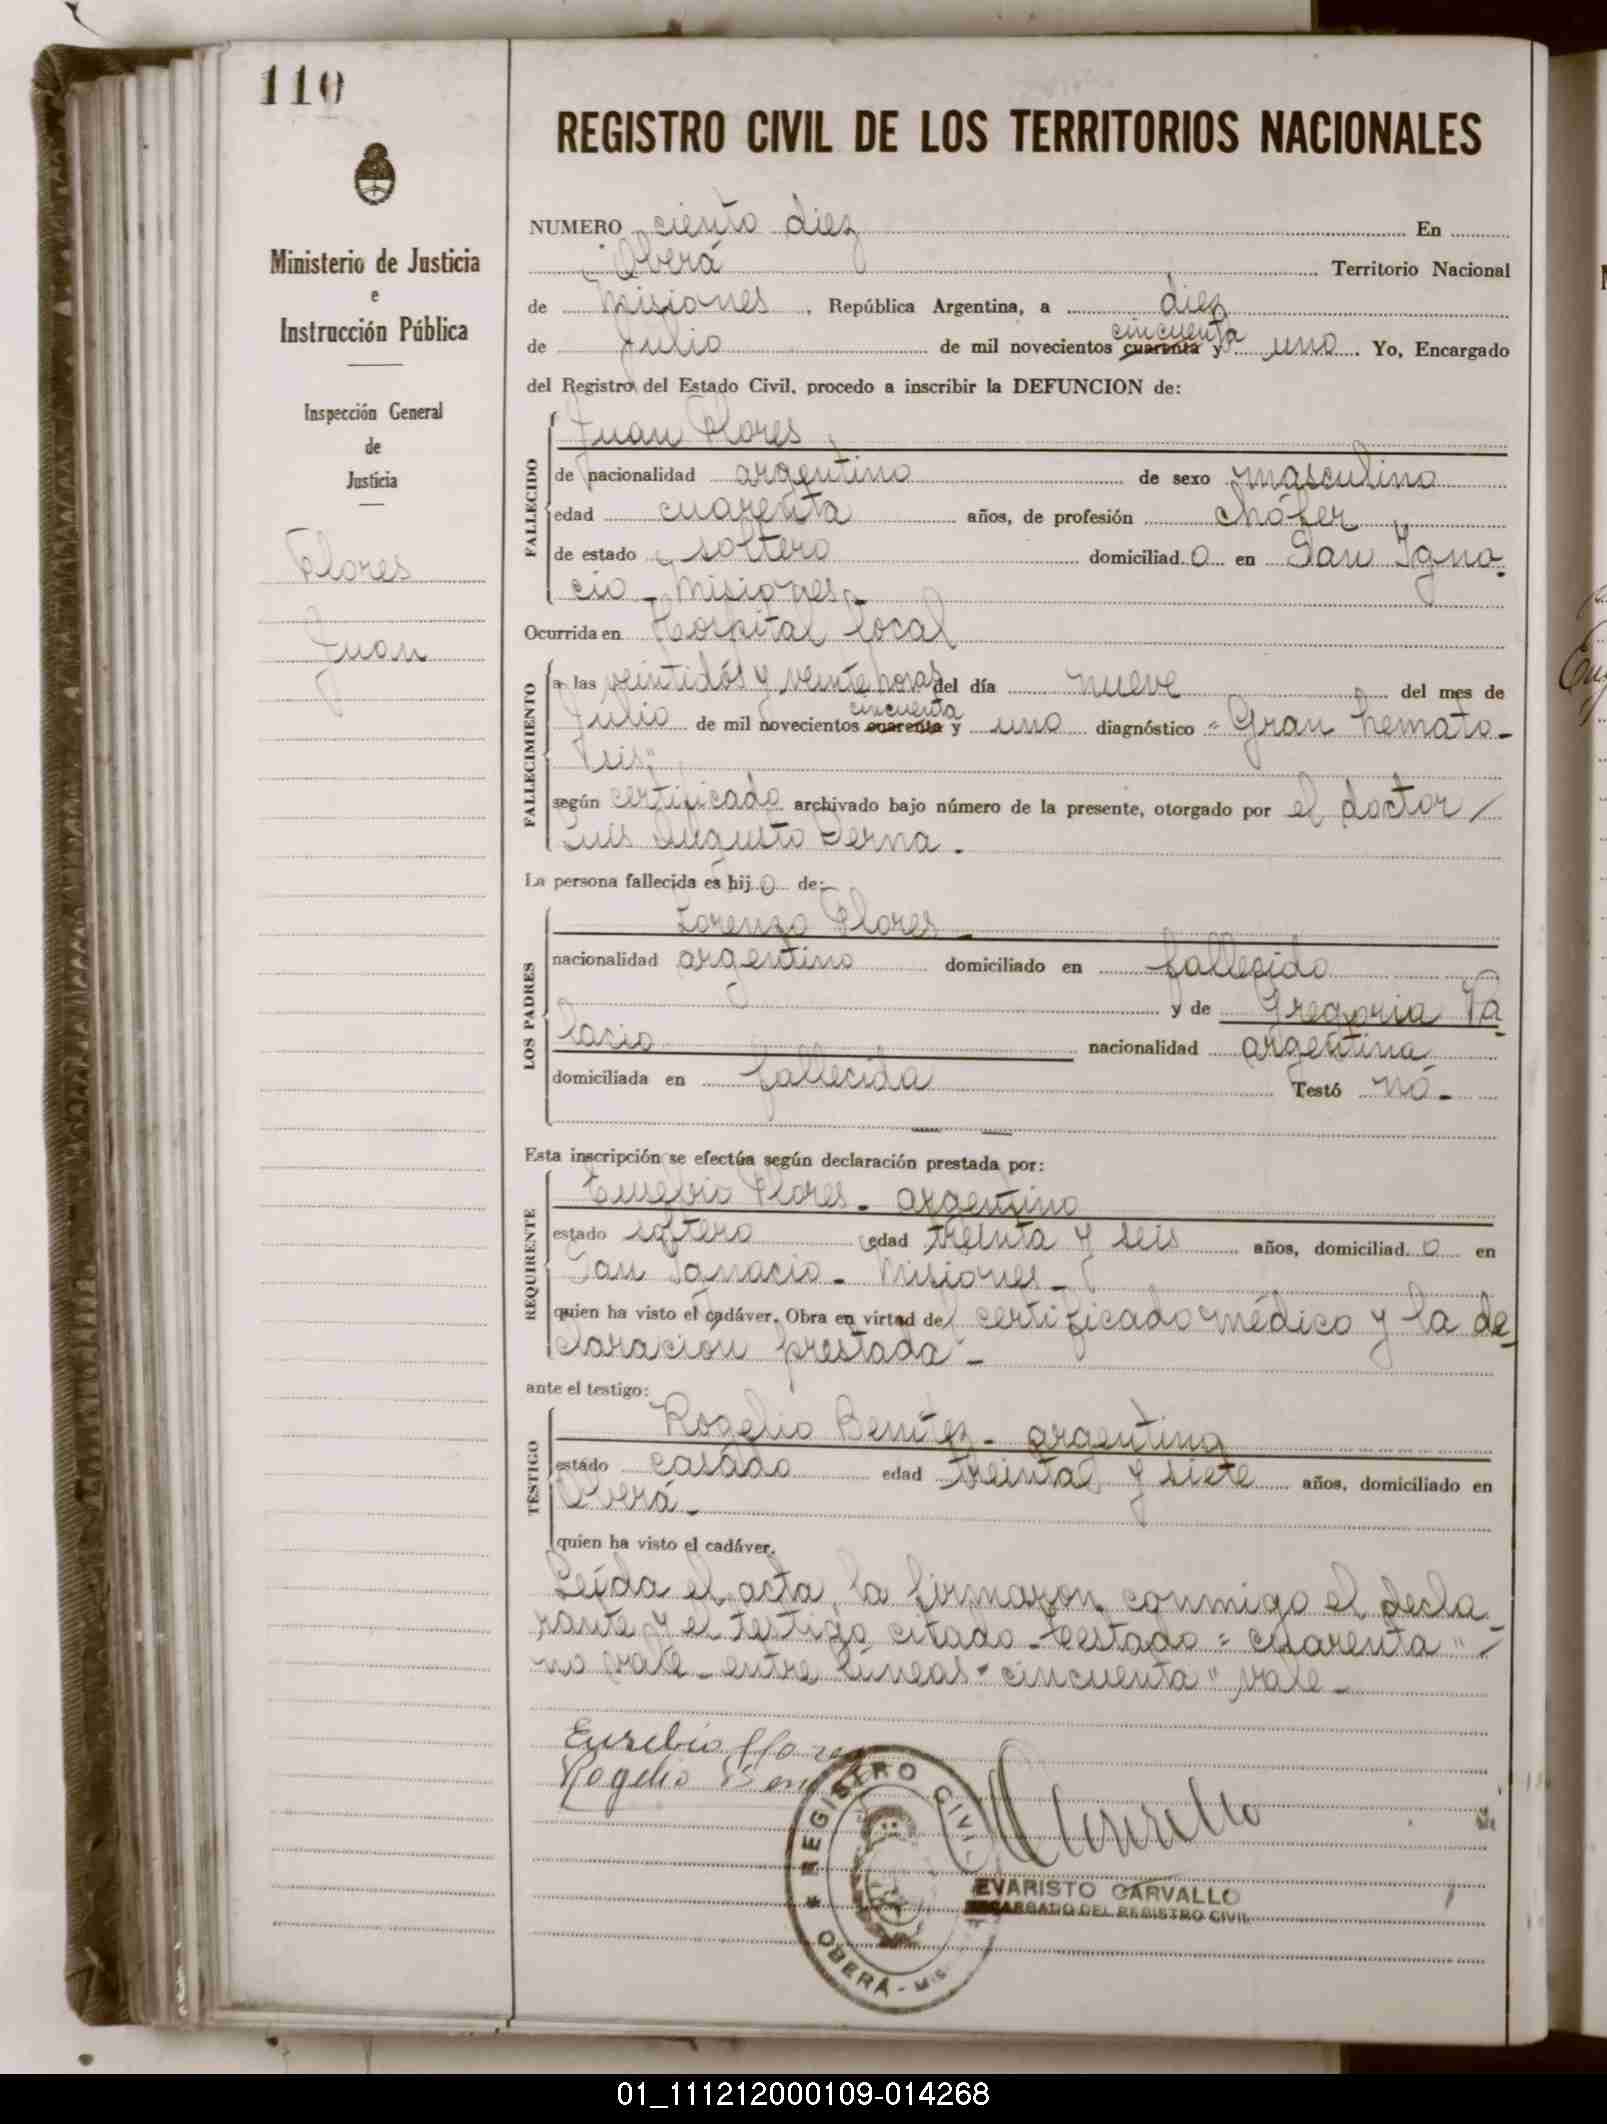 110
Ministerio de Justicia
e
Instrucción Pública
Inspección General
de
Justicia
Flores
Juan
REGISTRO CIVIL DE LOS TERRITORIOS NACIONALES
NUMERO ciento diez En
Oberá Territorio Nacional
de Misiones, República Argentina, a diez
cincuenta
de Julio de mil novecientos cuarenta y uno. Yo, Encargado
del Registro del Estado Civil, procedo a inscribir la DEFUNCION de:
FALLECIDO
Juan Flores
de nacionalidad argentino de sexo masculino
edad cuarenta años, de profesión chófer
de estado soltero domiciliado en San Igna-
cio - Misiones -
Ocurrida en Hospital local
FALLECIMIENTO
a las veintidós y veinte horas del día nueve del mes de
cincuenta
Julio de mil novecientos cuarenta y uno diagnóstico "Gran hemato-
sis"
según certificado archivado bajo número de la presente, otorgado por el doctor /
Luis Augusto Derna.-
La persona fallecida es hijo de:
LOS PADRES
Lorenzo Flores -
nacionalidad argentino domiciliado en fallecido
y de Gregoria Pa-
lacio nacionalidad argentina
domiciliada en fallecida Testó nó -
Esta inscripción se efectúa según declaración prestada por:
REQUIRENTE
Eusebio Flores - argentino
estado soltero edad treinta y seis años, domiciliado en
San Ignacio - Misiones -
quien ha visto el cadáver. Obra en virtud del certificado médico y la de-
claración prestada -
ante el testigo:
TESTIGO
Rogelio Benítez - argentino
estado casado edad treinta y siete años, domiciliado en
Oberá -
quien ha visto el cadáver.
Leída el acta, la firmaron conmigo el decla-
rante y el testigo citado - testado = cuarenta" /
no vale - entre líneas "cincuenta" vale -
Eusebio Flores
Rogelio Beni
REGISTRO CIVIL
OBERÁ - MIS.
EVARISTO CARVALLO
ENCARGADO DEL REGISTRO CIVIL
01_111212000109-014268